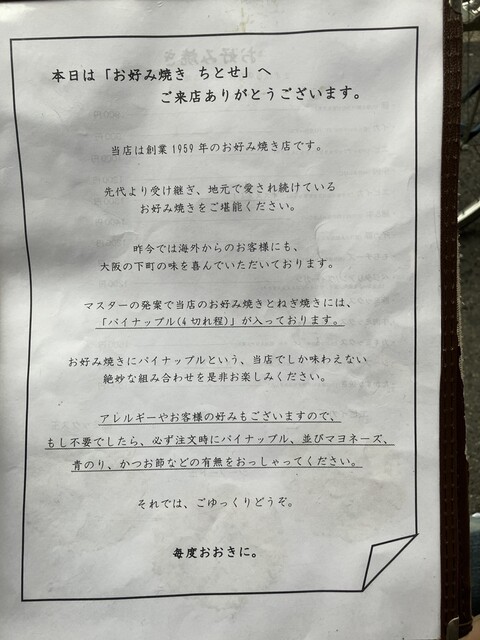 本日は「お好み焼き ちとせ」へ
ご来店ありがとうございます。
当店は創業1959年のお好み焼き店です。
先代より受け継ぎ、地元で愛され続けている
お好み焼きをご堪能ください。
昨今では海外からのお客様にも、
大阪の下町の味を喜んでいただいております。
マスターの発案で当店のお好み焼きとねぎ焼きには、
「パイナップル(4切れ程)」が入っております。
お好み焼きにパイナップルという、当店でしか味わえない
絶妙な組み合わせを是非お楽しみください。
アレルギーやお客様の好みもございますので、
もし不要でしたら、必ず注文時にパイナップル、並びマヨネーズ、
青のり、かつお節などの有無をおっしゃってください。
それでは、ごゆっくりどうぞ。
毎度おおきに。